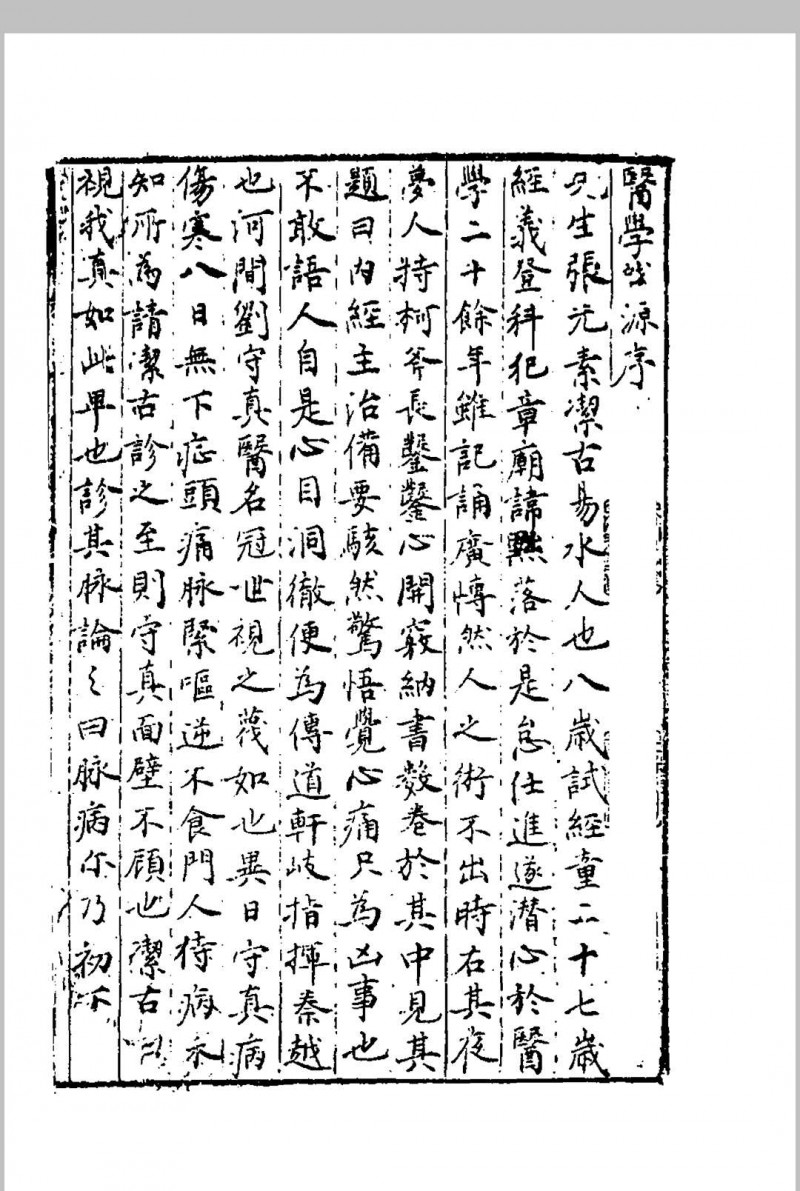 醫學啟源序
先生張元素潔古易水人也八歲試經童二十七歲
經義登科犯章廟諱黜落於是怠仕進遂潛心於醫
學二十餘年雖記誦廣博然人之術不出時右其夜
夢人持柯斧長鑿鑿心開竅納書數卷於其中見其
題曰內經主治備要駭然驚悟覺心痛只為凶事也
不敢語人自是心目洞徹便為傳道軒岐指揮秦越
也河間劉守真醫名冠世視之蔑如也異日守真病
傷寒八日無下症頭痛脉緊嘔逆不食門人侍病未
知所為請潔古診之至則守真面壁不顧也潔古曰
視我真如此卑也診其脉論之曰脉病尔乃初下